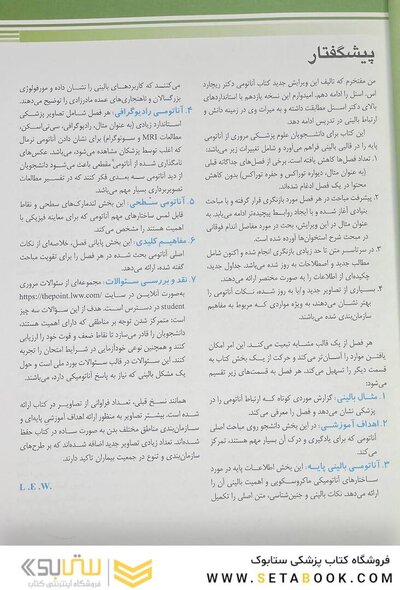 پیشگفتار
من مفتخرم که تالیف این ویرایش جدید کتاب آناتومی دکتر ریچارد
اس. اسنل را ادامه دهم. امیدوارم این نسخه یازدهم با استانداردهای
بالای دکتر اسنل مطابقت داشته و به میراث وی در زمینه دانش و
ارتباط بالینی در تدریس ادامه دهد.
این کتاب برای دانشجویان علوم پزشکی مروری از آناتومی
پایه را در قالبی بالینی فراهم می‌آورد و شامل تغییرات زیر می‌باشد:
۱. تعداد فصل‌ها کاهش یافته است. برخی از فصل‌های جداگانه قبلی
(به عنوان مثال، دیواره توراکس و حفره توراکس) بدون کاهش
محتوا در یک فصل ادغام شده‌اند.
۲. پیشرفت مباحث در هر فصل مورد بازنگری قرار گرفته و با مباحث
بنیادی آغاز شده و با ایجاد روابط پیچیده‌تر ادامه می‌یابد. به
عنوان مثال در این ویرایش، بحث در مورد مفاصل اندام فوقانی
در مبحث شرح استخوان‌ها آورده شده است.
۳. در سرتاسر متن تا حد زیادی بازنگری انجام شده و اکنون شامل
مطالب جدید و اصطلاحات به روز شده می‌باشد. جداول جدید،
چکیده‌ای از اطلاعات را به صورت مختصر ارائه می‌دهند.
۴. بسیاری از تصاویر جدید و/یا به روز شده، نکات آناتومی را
بهتر نشان می‌دهند. به ویژه مواردی که مربوط به مفاهیم
سازمان‌بندی شده می‌باشند.
هر فصل از یک قالب مشابه تبعیت می‌کند. این امر امکان
یافتن موارد را آسان‌تر می‌کند و حرکت از یک بخش کتاب به
قسمت دیگر را تسهیل می‌کند. هر فصل به قسمت‌های زیر تقسیم
می‌شود:
۱. مثال بالینی: گزارش موردی کوتاه که ارتباط آناتومی را در
پزشکی نشان می‌دهد و فصل را معرفی می‌کند.
۲. اهداف آموزشی: در این بخش دانشجو روی مباحث اصلی
آناتومی که برای یادگیری و درک آن بسیار مهم هستند، تمرکز
می‌کند.
۳. آناتومی بالینی پایه: این بخش اطلاعات پایه در مورد
ساختارهای آناتومیکی ماکروسکوپی و اهمیت بالینی آن را
ارائه می‌دهد. نکات بالینی و جنین‌شناسی، متن اصلی را تکمیل
می‌کنند که کاربردهای بالینی را نشان داده و مورفولوژی
بزرگسالان و ناهنجاری‌های عمده مادرزادی را توضیح می‌دهند.
۴. آناتومی رادیوگرافی: هر فصل شامل تصاویر پزشکی
استاندارد زیادی (به عنوان مثال، رادیوگرافی، سی‌تی‌اسکن،
مطالعات MRI و سونوگرام) برای نشان دادن آناتومی نرمال
که اغلب توسط پزشکان مشاهده می‌شود، می‌باشد. عکس‌های
نامگذاری شده از آناتومی مقطعی باعث می‌شود دانشجویان
از دید آناتومی سه بعدی فکر کنند که در تفسیر مطالعات
تصویربرداری بسیار مهم می‌باشد.
۵. آناتومی سطحی: این بخش لندمارک‌های سطحی و نقاط
قابل لمس ساختارهای مهم آناتومی که برای معاینه فیزیکی با
اهمیت هستند را مشخص می‌کند.
۶. مفاهیم کلیدی: این بخش پایانی فصل، خلاصه‌ای از نکات
اصلی آناتومی بحث شده در هر فصل را برای تقویت مباحث
گفته شده، ارائه می‌دهد.
۷. نقد و بررسی سئوالات: مجموعه‌ای از سئوالات مروری
به‌صورت آنلاین در سایت https://thepoint.lww.com/
student در دسترس است. هدف از این سئوالات سه چیز
است: متمرکز شدن توجه بر مناطقی که دارای اهمیت هستند،
دانشجویان را قادر می‌سازد تا نقاط ضعف و قوت خود را ارزیابی
کنند و همچنین نوعی خودآزمایی در شرایط امتحان را تجربه
کنند. این سئوالات در قالب سئوالات بورد ملی است و حول
یک مشکل بالینی که نیاز به پاسخ آناتومیکی دارد، می‌باشند.
همانند نسخ قبلی، تعداد فراوانی از تصاویر در کتاب ارائه
شده است. بیشتر تصاویر به منظور ارائه اهداف آموزشی پایه‌ای و
سازمان‌بندی مناطق مختلف بدن به صورت ساده در کتاب حفظ
شده‌اند. تعداد زیادی تصاویر جدید اضافه شده‌اند که بر طرح‌های
سازمان‌بندی و تنوع در جمعیت بیماران تاکید دارند.
L.E.W.
فروشگاه کتاب پزشکی ستابوک
WWW.SETABOOK.COM
ستابوک
فروشگاه اینترنتی کتاب